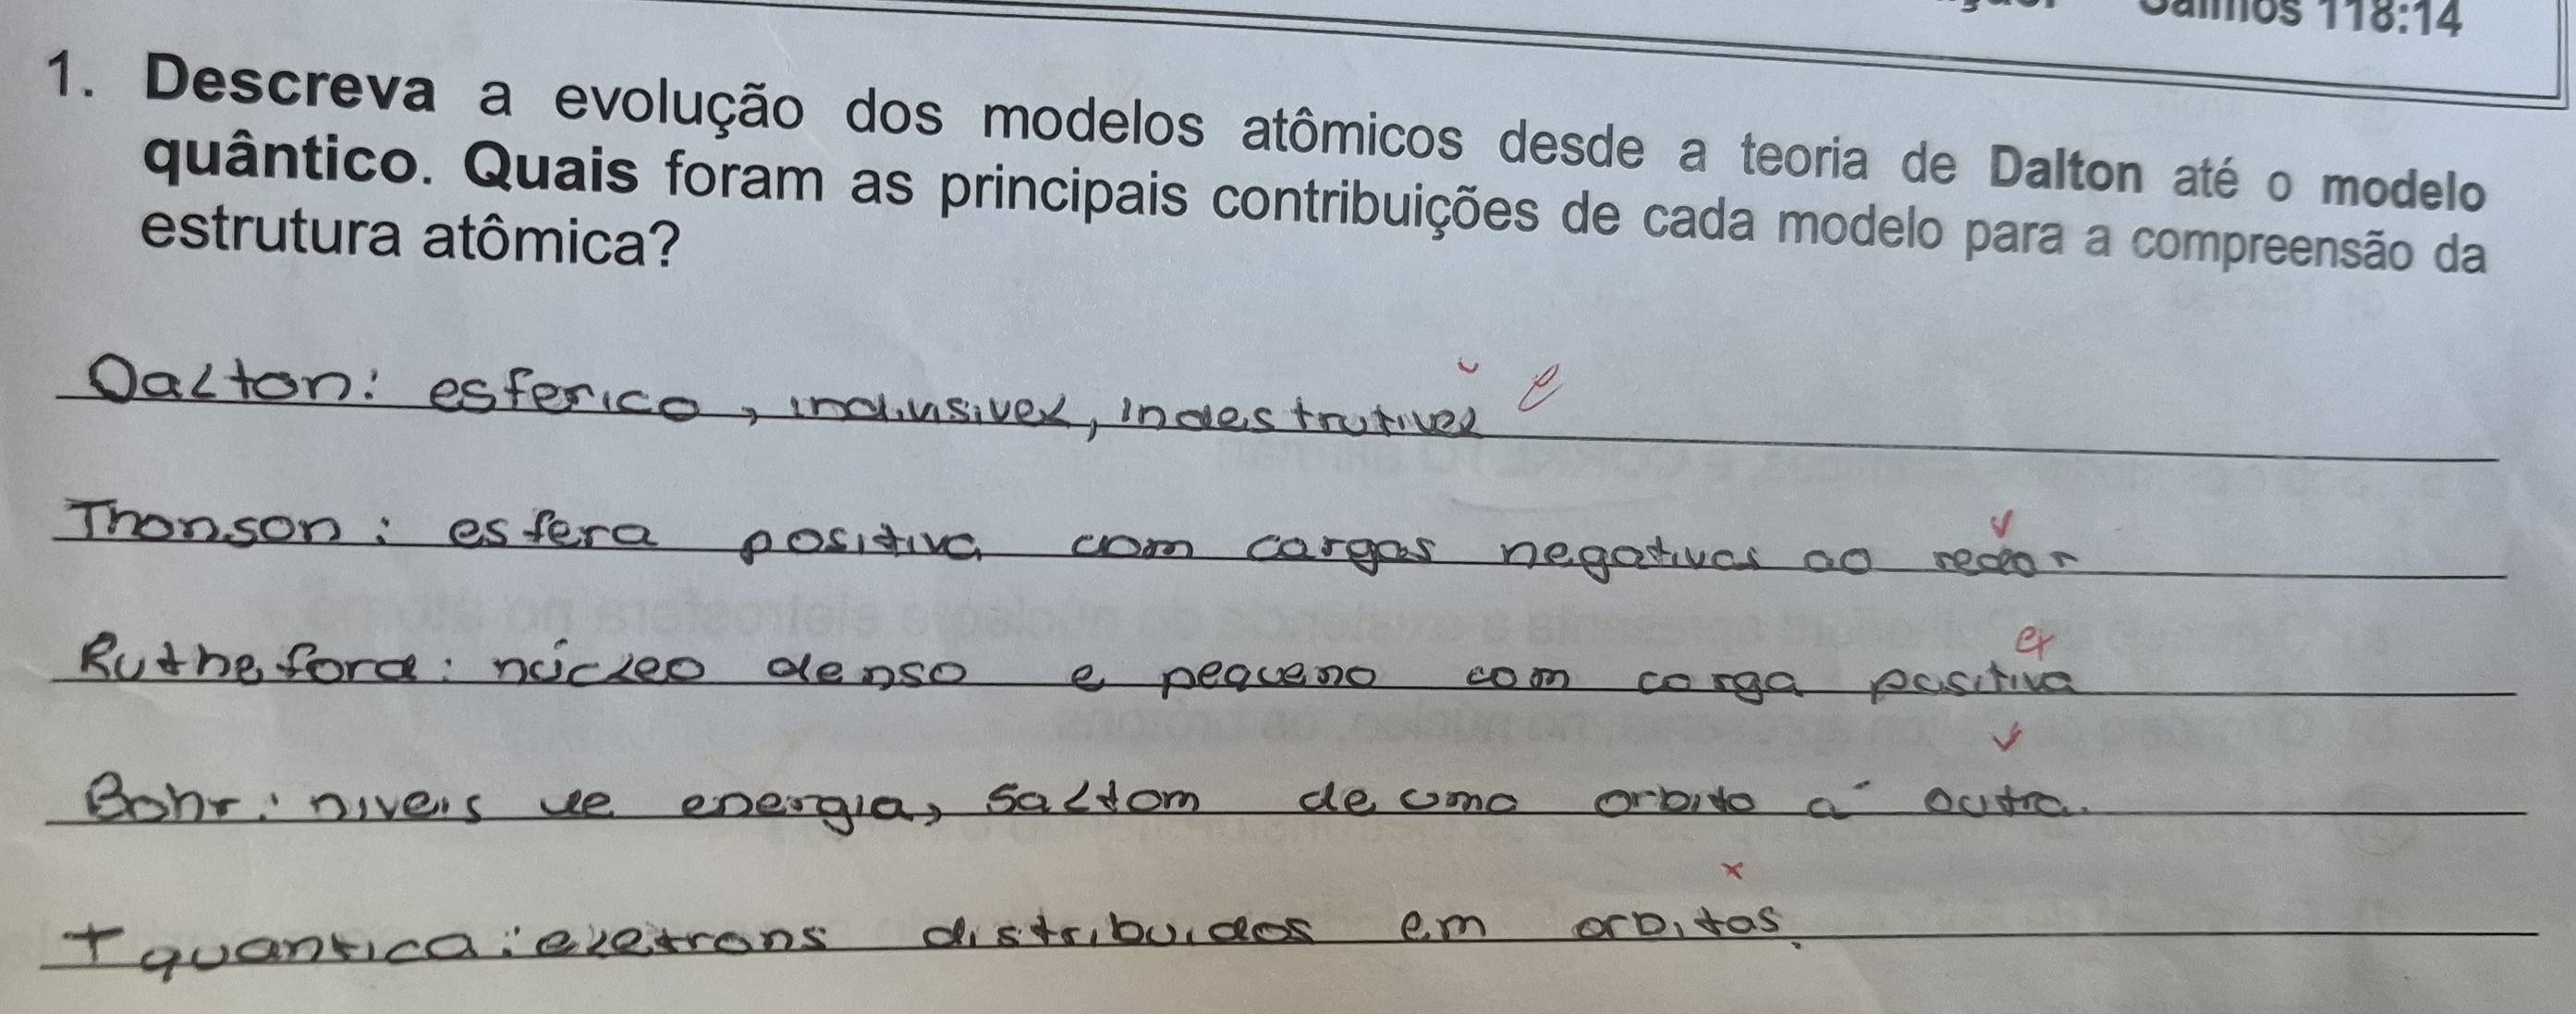 Salmos 118:14
1. Descreva a evolução dos modelos atômicos desde a teoria de Dalton até o modelo
quântico. Quais foram as principais contribuições de cada modelo para a compreensão da
estrutura atômica?
Dalton: esferico, indivisivel, indestrutivel
Thonson: esfera positiva com cargas negativas ao redor
Rutheford: núcleo denso e pequeno com carga positiva
Bohr: niveis de energia, saltam de uma orbita a outra.
T quantica: eletrons distribuidos em orbitas.